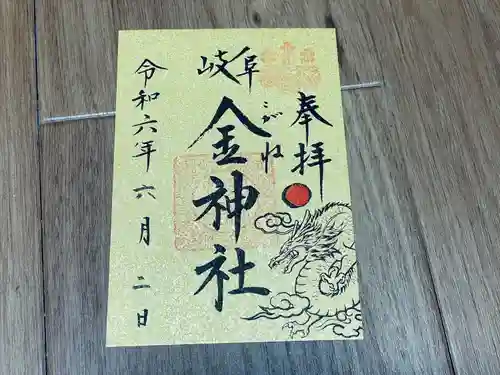 奉拝
岐阜
金神社
こがね
令和六年六月二日